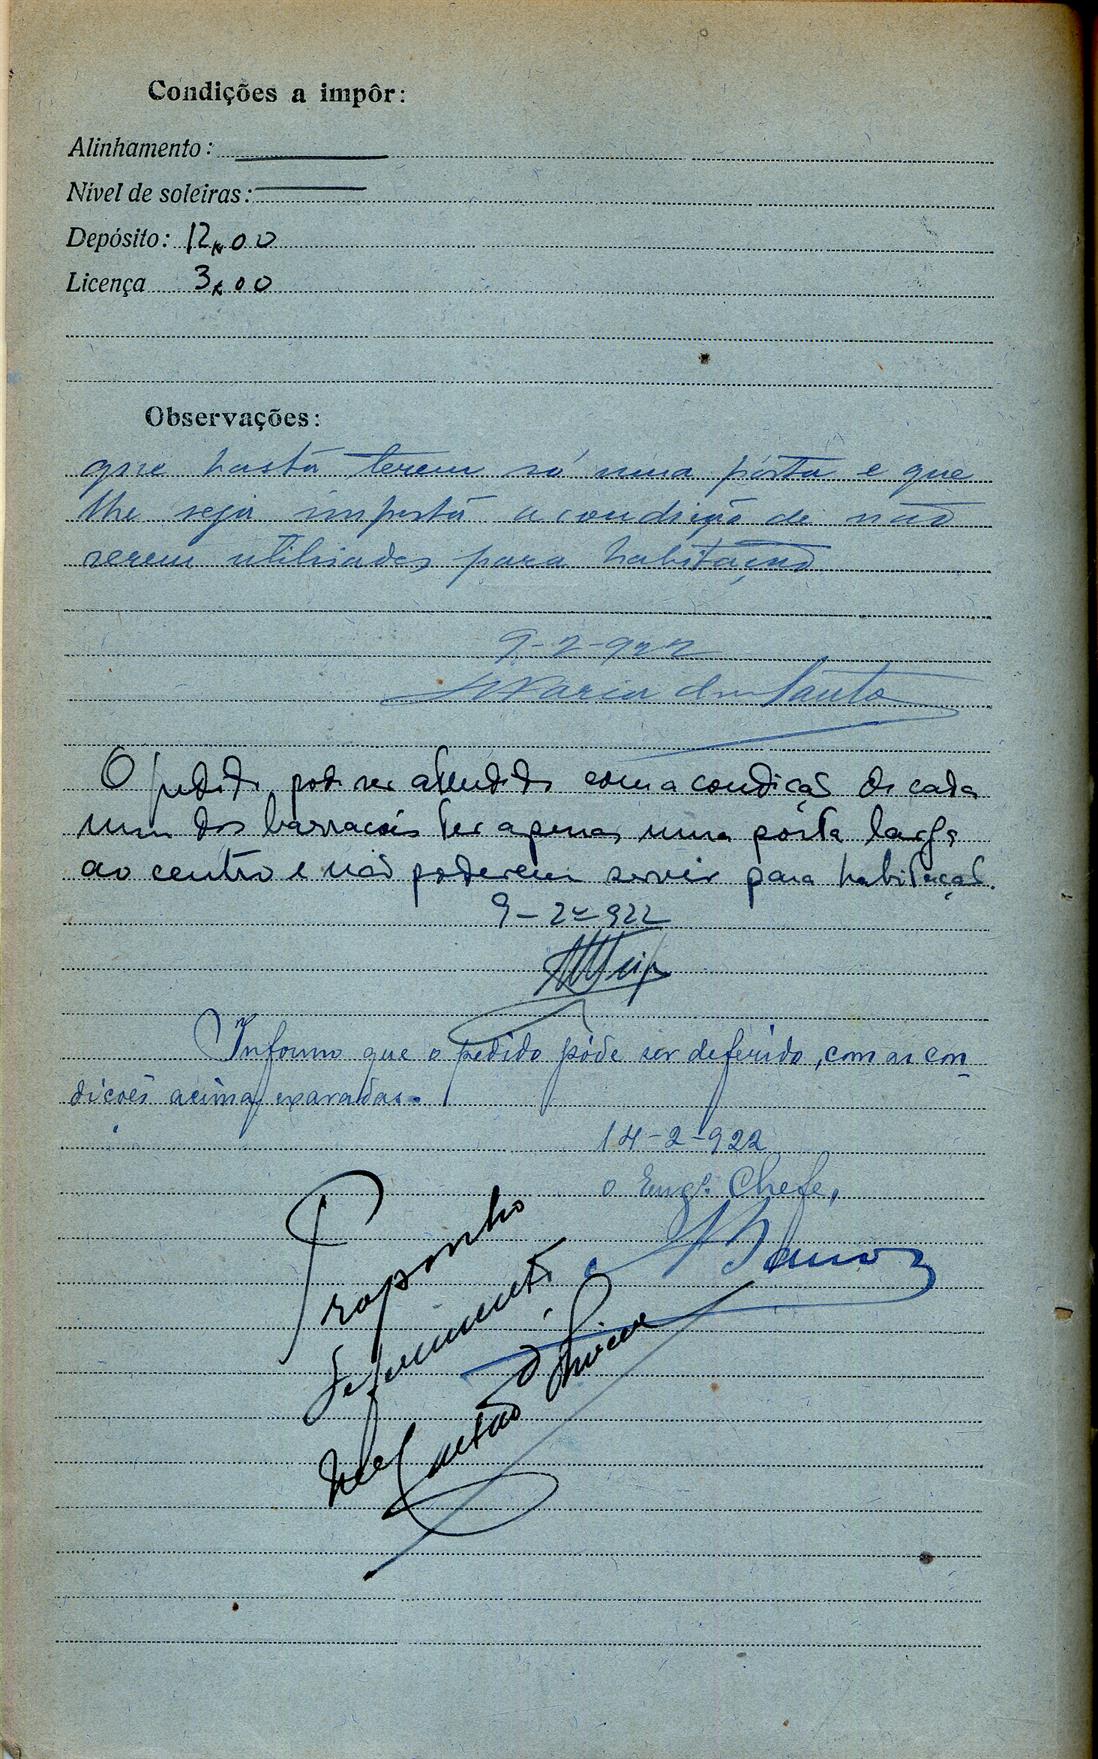 Condições a impôr:
Alinhamento:
Nível de soleiras:
Depósito: 12$00
Licença 3$00
Observações:
que basta terem só uma porta e que
lhe seja imposta a condição de não
serem utilisadas para habitação
9-2-922
O pedido pode ser attendido com a condição de cada
um dos barracões ter apenas uma pórta larga
ao centro e não poderem servir para habitação.
9-2º-922
Informo que o pedido póde ser deferido, com as con
dicões acima exaradas.
14-2-922
O Engº. Chefe,
Proponho
deferimento
Caetano d'Oliveira